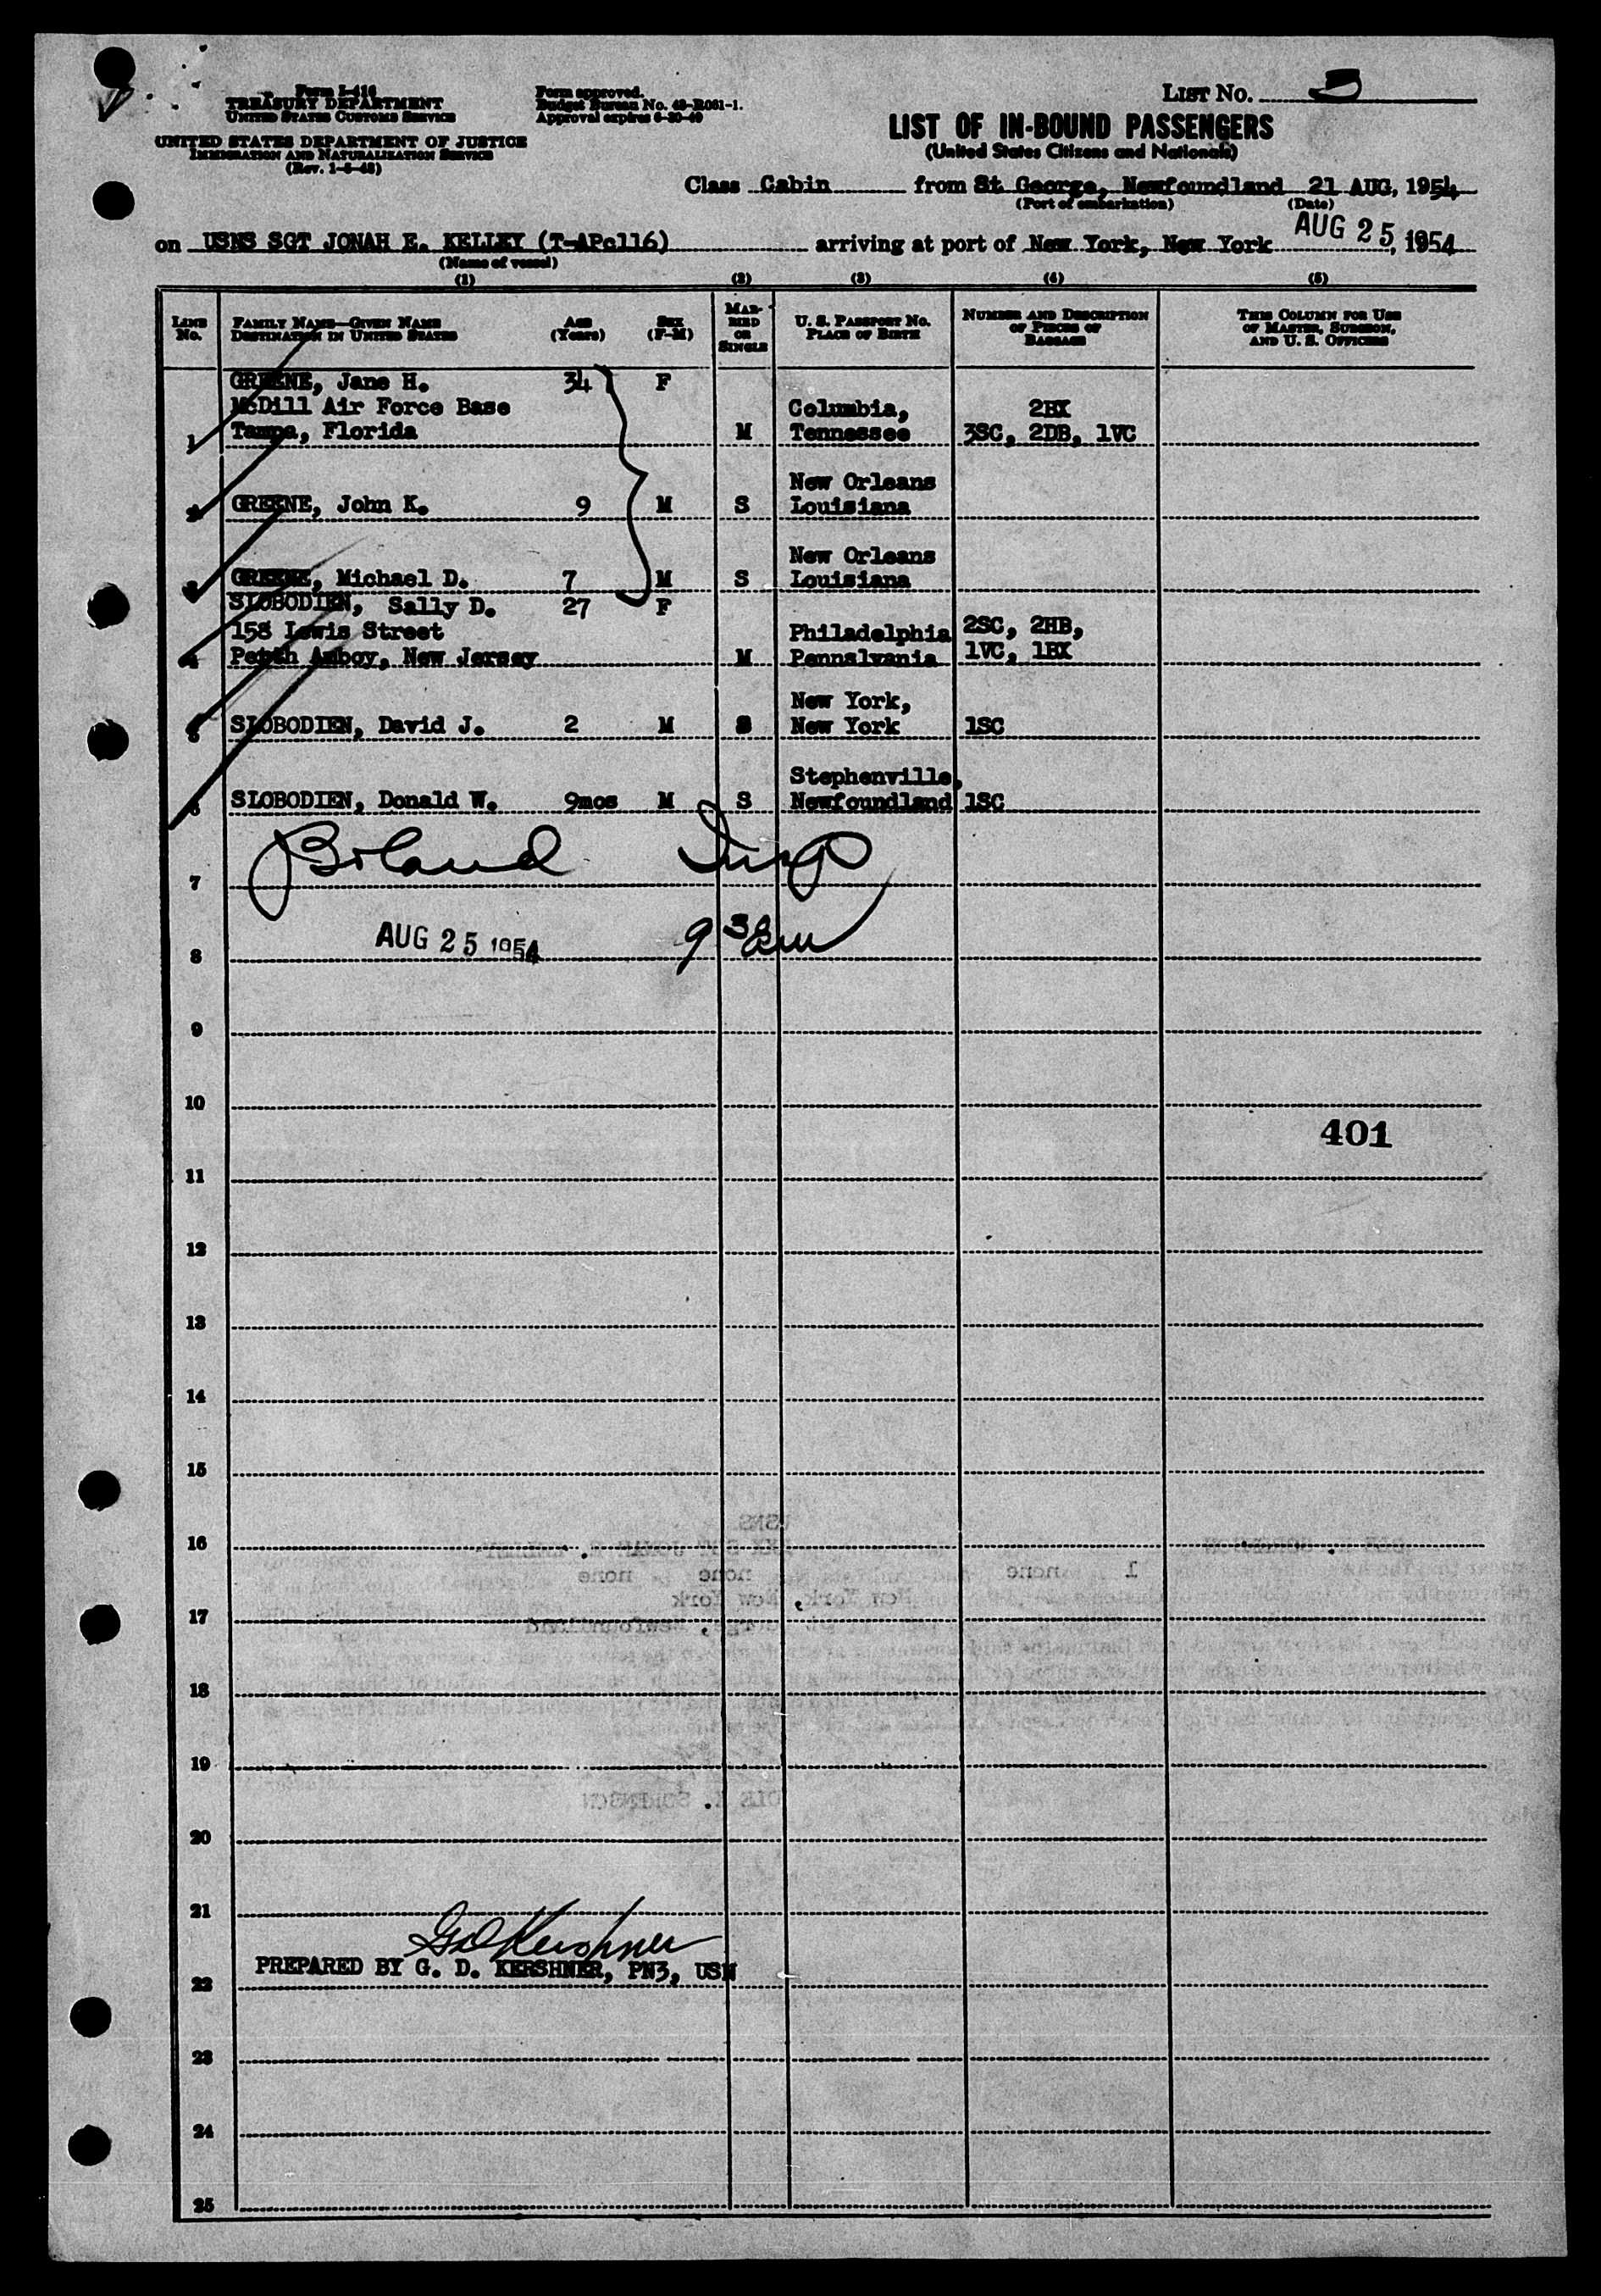 LIST NO. 3
Form I-416
TREASURY DEPARTMENT
UNITED STATES CUSTOMS SERVICE
UNITED STATES DEPARTMENT OF JUSTICE
IMMIGRATION AND NATURALIZATION SERVICE
(Rev. 1-5-48)
Form approved.
Budget Bureau No. 43-R061-1.
Approval expires 6-30-49
LIST OF IN-BOUND PASSENGERS
(United States Citizens and Nationals)
Class Cabin from St George, Newfoundland 21 AUG, 1954
(Port of embarkation) (Date)
on USNS SGT JONAH E. KELLEY (T-APc116) arriving at port of New York, New York AUG 25, 1954
(Name of vessel)
(1) (2) (3) (4) (5)
LINE No. FAMILY NAME—GIVEN NAME DESTINATION IN UNITED STATES AGE (Years) SEX (F-M) MARRIED OR SINGLE U. S. PASSPORT NO. PLACE OF BIRTH NUMBER AND DESCRIPTION OF PIECES OF BAGGAGE THIS COLUMN FOR USE OF MASTER, SURGEON, AND U. S. OFFICERS
GREENE, Jane H. 34 F
McDill Air Force Base Columbia, 2BX
1 Tampa, Florida M Tennessee 3SC, 2DB, 1VC
New Orleans
2 GREENE, John K. 9 M S Louisiana
New Orleans
3 GREENE, Michael D. 7 M S Louisiana
SLOBODIEN, Sally D. 27 F
158 Lewis Street Philadelphia 2SC, 2HB,
4 Peteh Amboy, New Jersey M Pennslvania 1VC, 1BX
New York,
5 SLOBODIEN, David J. 2 M S New York 1SC
Stephenville,
6 SLOBODIEN, Donald W. 9mos M S Newfoundland 1SC
Boland Insp
7
AUG 25 1954
8
9
10
401
11
12
13
14
15
16
17
18
19
20
21
GD Kershner
PREPARED BY G. D. KERSHNER, PN3, USN
22
23
24
25